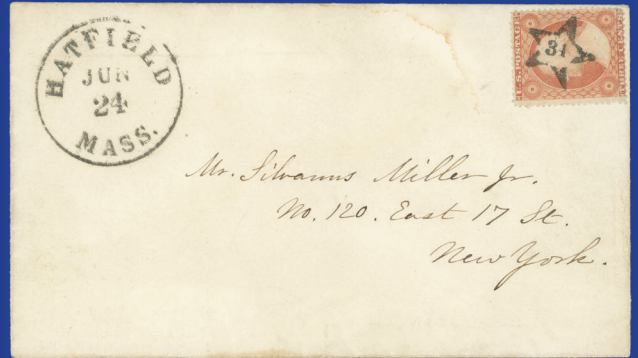 HATFIELD
JUN
24
MASS.
U.S. POSTAGE
31
Mr. Silvanus Miller Jr.
No. 120. East 17 St.
New York.